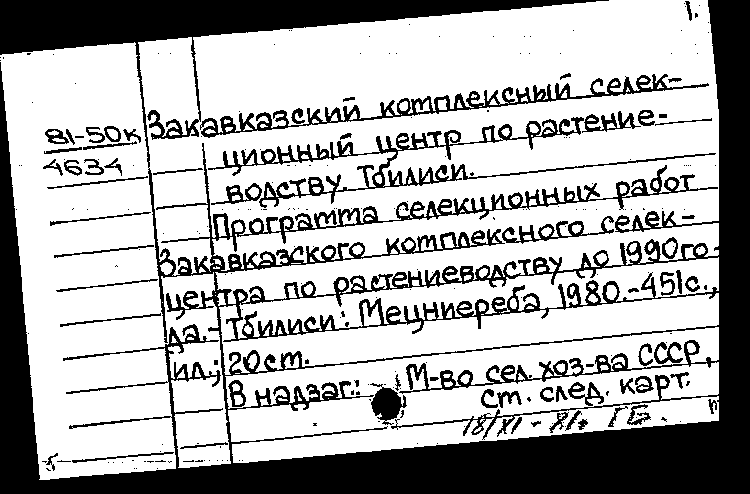 1.
81-50к Закавказский комплексный селек-
4634 ционный центр по растение-
водству. Тбилиси.
Программа селекционных работ
Закавказского комплексного селек-
центра по растениеводству до 1990го-
да.- Тбилиси: Мецниереба, 1980.-451с.,
ил.; 20см.
В надзаг.: М-во сел. хоз-ва СССР,
см. след. карт.
18/XI - 81. ГБ.